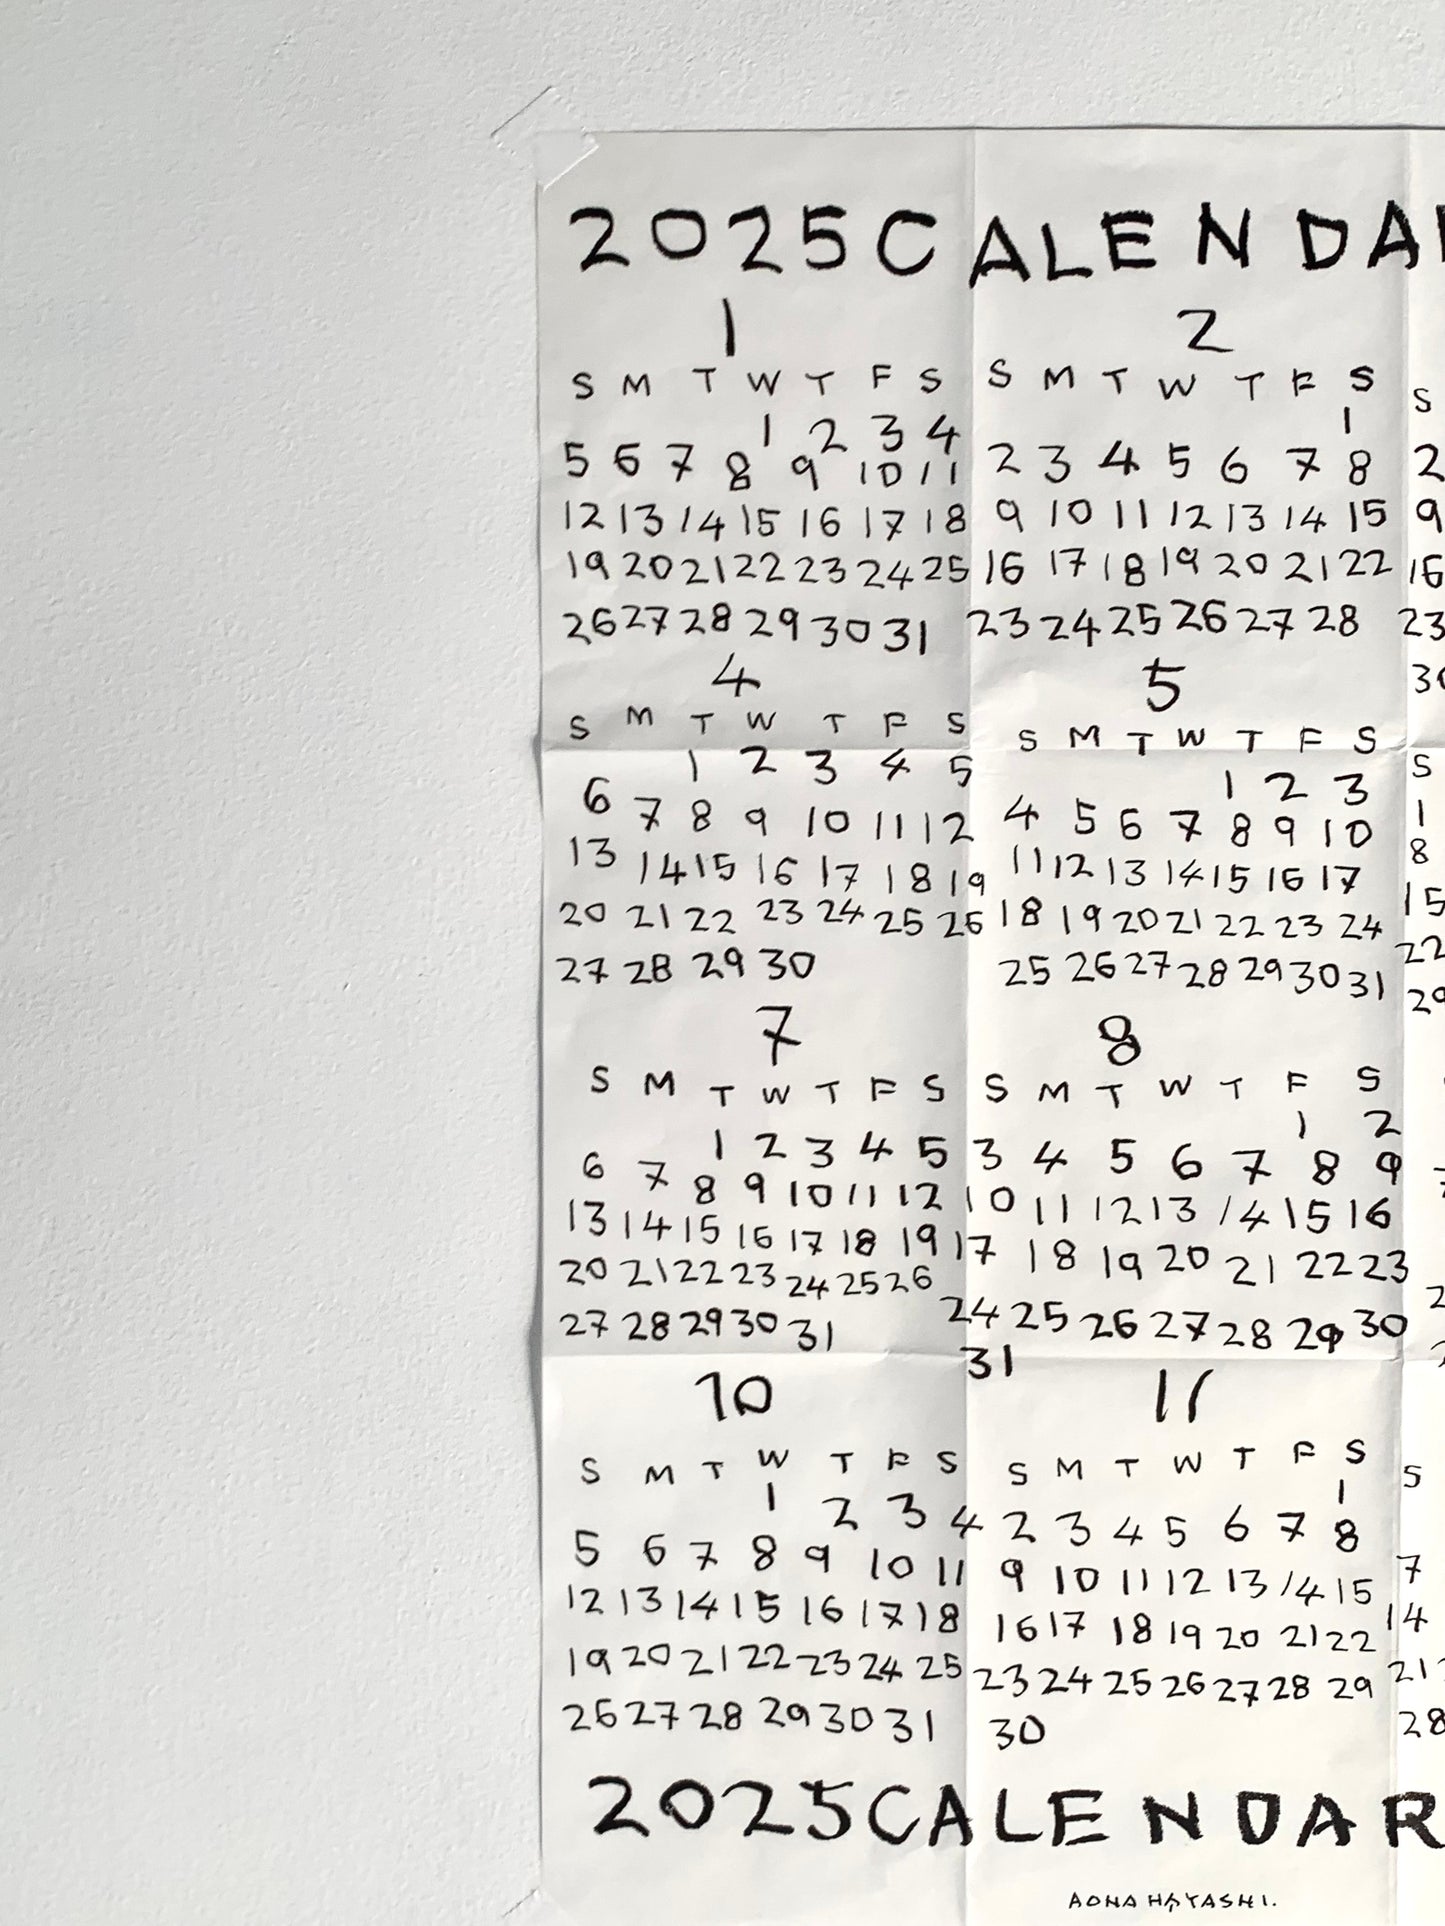 2025 CALENDA
1
S M T W T F S
1 2 3 4
5 6 7 8 9 10 11
12 13 14 15 16 17 18
19 20 21 22 23 24 25
26 27 28 29 30 31
2
S M T W T F S
1
2 3 4 5 6 7 8
9 10 11 12 13 14 15
16 17 18 19 20 21 22
23 24 25 26 27 28
S
2
9
16
23
30
4
S M T W T F S
1 2 3 4 5
6 7 8 9 10 11 12
13 14 15 16 17 18 19
20 21 22 23 24 25 26
27 28 29 30
5
S M T W T F S
1 2 3
4 5 6 7 8 9 10
11 12 13 14 15 16 17
18 19 20 21 22 23 24
25 26 27 28 29 30 31
S
1
8
15
22
29
7
S M T W T F S
1 2 3 4 5
6 7 8 9 10 11 12
13 14 15 16 17 18 19
20 21 22 23 24 25 26
27 28 29 30 31
8
S M T W T F S
1 2
3 4 5 6 7 8 9
10 11 12 13 14 15 16
17 18 19 20 21 22 23
24 25 26 27 28 29 30
31
10
S M T W T F S
1 2 3 4
5 6 7 8 9 10 11
12 13 14 15 16 17 18
19 20 21 22 23 24 25
26 27 28 29 30 31
11
S M T W T F S
1
2 3 4 5 6 7 8
9 10 11 12 13 14 15
16 17 18 19 20 21 22
23 24 25 26 27 28 29
30
S
7
14
21
28
2025 CALENDAR
AONA HAYASHI.